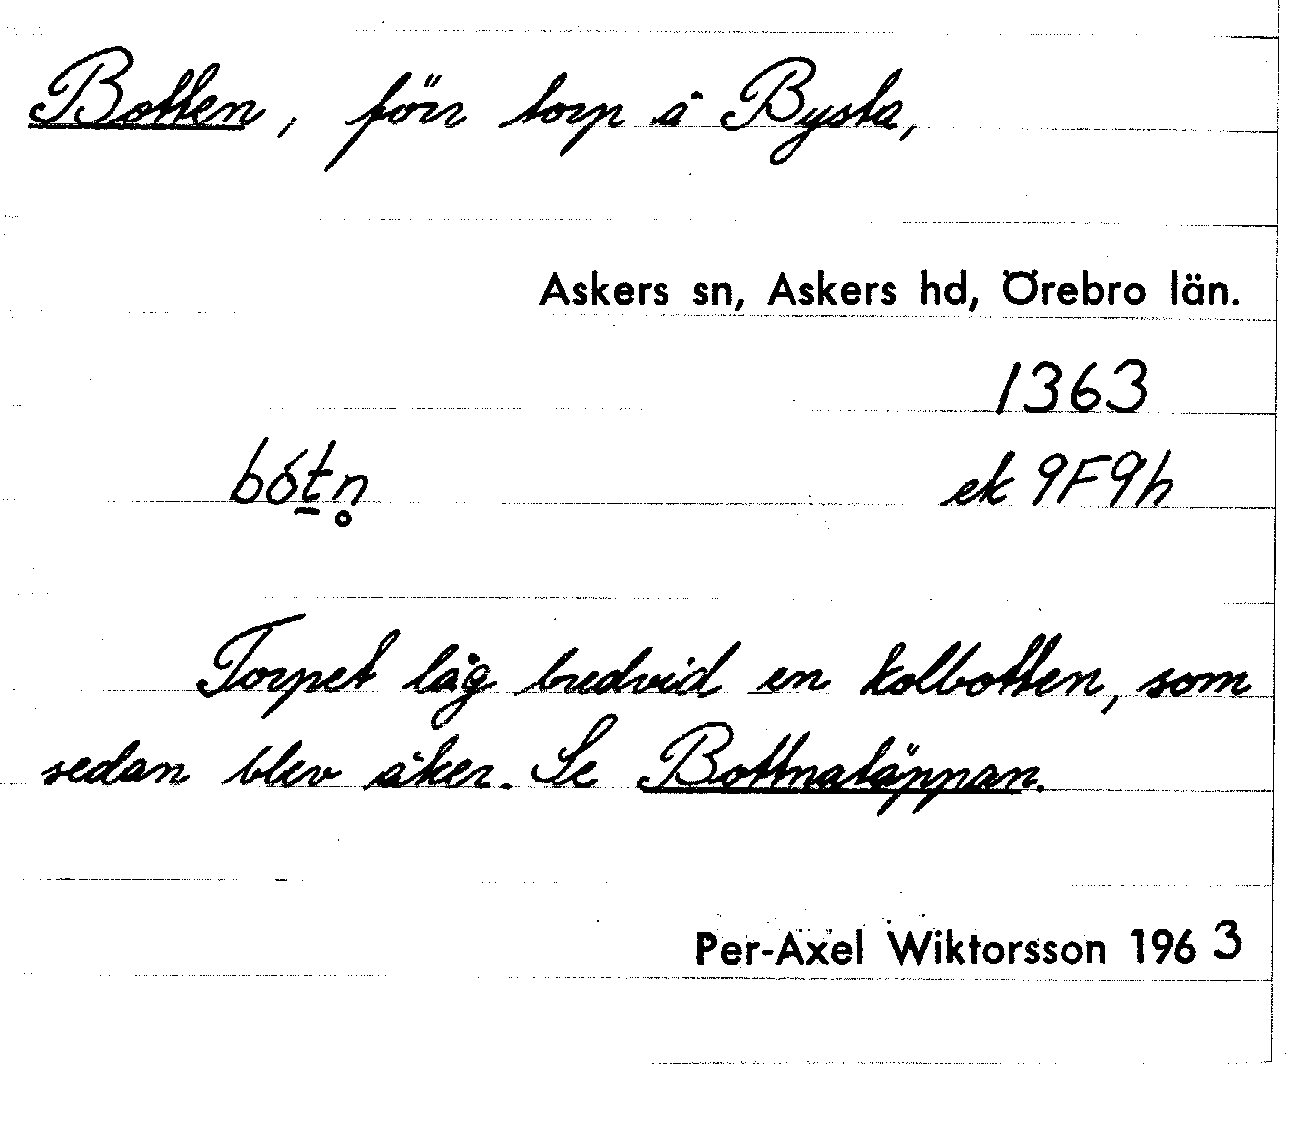 Botten, förr torp å Bysta,
Askers sn, Askers hd, Örebro län.
1363
bót̠n̥ ek 9F9h
Torpet låg bredvid en kolbotten, som
sedan blev åker. Se Bottnatäppan.
Per-Axel Wiktorsson 1963